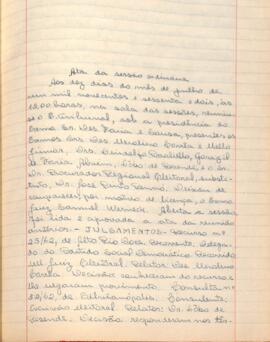 Ata da sessão ordinária
Aos dez dias do mês de julho de
um mil novecentos e sessenta e dois, às
12,00 horas, na sala das sessões, reuniu-
se o E. Tribunal, sob a presidência do
Exmo. Sr. Des. Faria e Sousa, presentes os
Exmos. Srs. Des. Merolino Corrêa e Mello
Júnior, Drs.
de Faria Alvim, Edésio de Rezende, e o Dr.
Dr. Procurador Regional Eleitoral, substi-
tuto, Dr. José Deixou de
comparecer, por motivo de licença, o Exmo.
Juiz Samuel Werneck. Aberta a sessão
foi lida e aprovada a ata da reunião
anterior. - JULGAMENTOS - Recurso nº
25/62, de Recorrente, Delega-
do do Partido Social Democrático. Recorrido
MM. Juiz Eleitoral. Relator Des. Merolino
Corrêa. Decisão: conheceram do recurso e
lhe negaram provimento. Consulta nº
52/62, de Consulente:
Escrivão eleitoral. Relator: Dr. Edésio de
Rezende. Decisão: responderam nos têr-